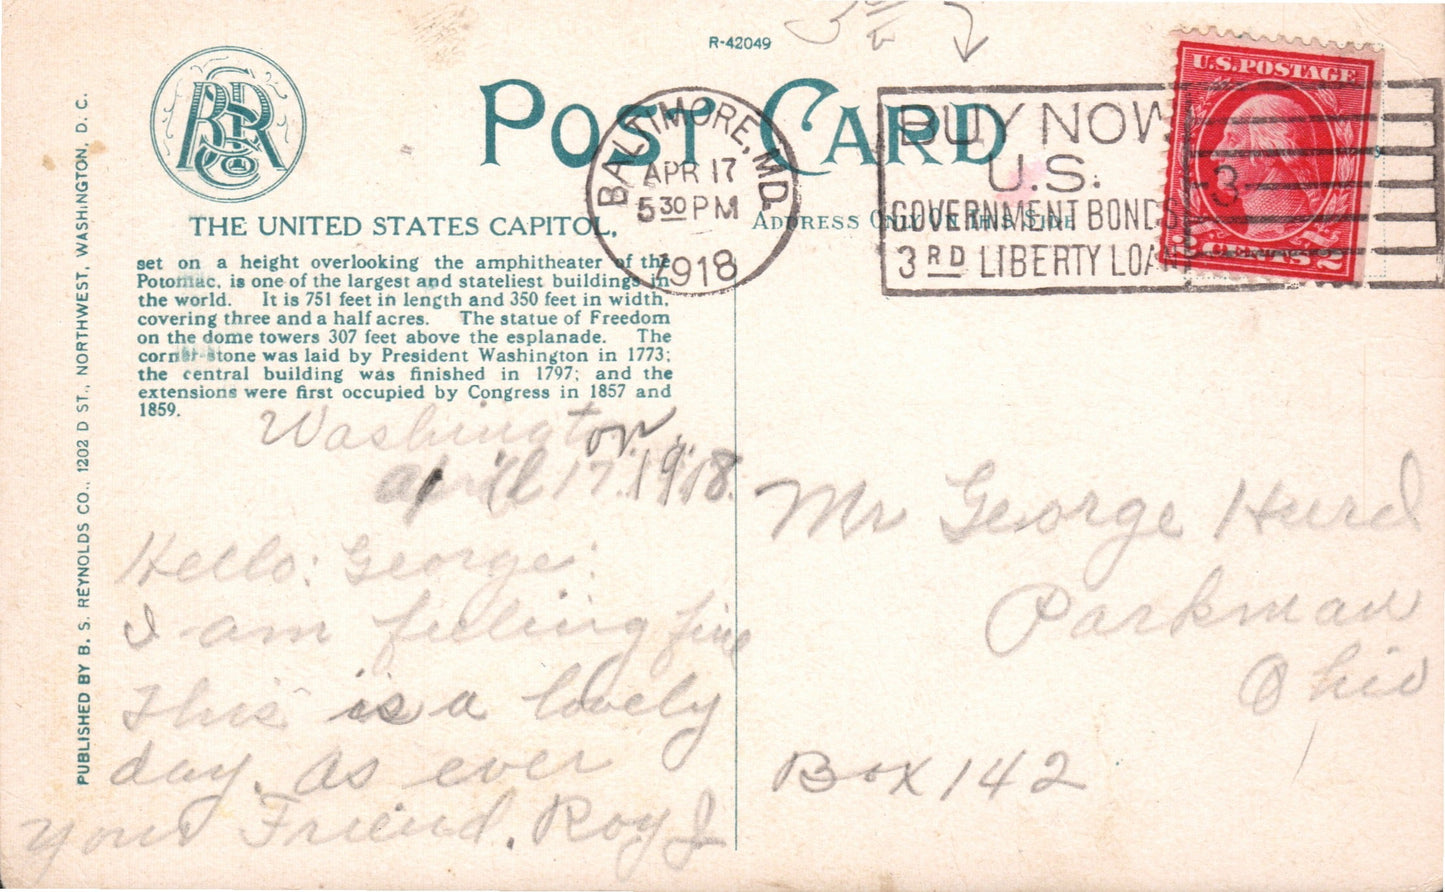 R-42049
BSR Co
POST CARD
BALTIMORE, MD.
APR 17
5 30 PM
1918
BUY NOW
U.S.
GOVERNMENT BONDS
3RD LIBERTY LOAN
3
U.S. POSTAGE
2 CENTS 2
ADDRESS ONLY ON THIS SIDE
THE UNITED STATES CAPITOL,
set on a height overlooking the amphitheater of the
Potomac, is one of the largest and stateliest buildings in
the world. It is 751 feet in length and 350 feet in width,
covering three and a half acres. The statue of Freedom
on the dome towers 307 feet above the esplanade. The
corner-stone was laid by President Washington in 1773;
the central building was finished in 1797; and the
extensions were first occupied by Congress in 1857 and
1859.
PUBLISHED BY B. S. REYNOLDS CO., 1202 D ST., NORTHWEST, WASHINGTON, D. C.
Washington,
April 17. 1918.
Hello: George:
I am feeling fine
This is a lovely
day. as ever
your Friend. Roy J
Mr George Hurd
Parkman
Ohio
Box 142